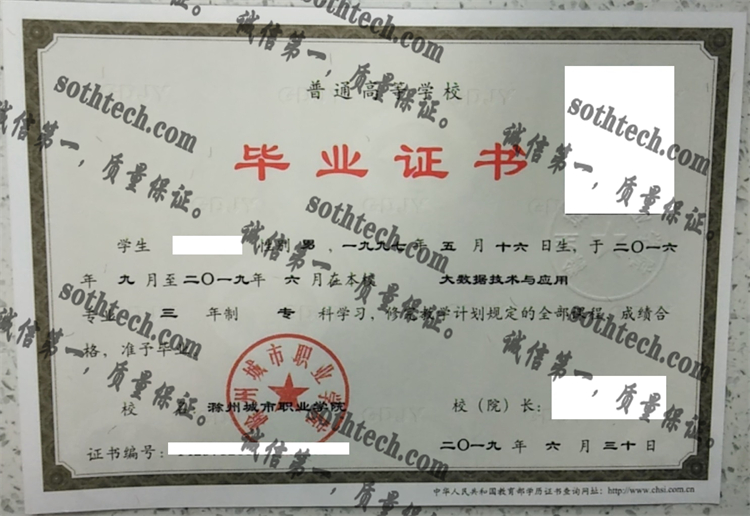 普通高等学校
毕业证书
学生 性别 男 ，一九九七年 五 月 十六 日生，于 二〇一六
年 九 月至 二〇一九年 六 月在本校 大数据技术与应用
专业 三 年制 专 科学习，修完教学计划规定的全部课程，成绩合
格，准予毕业
滁州城市职业学院
校 名 滁州城市职业学院 校（院）长：
证书编号： 二〇一九 年 六 月 三十 日
中华人民共和国教育部学历证书查询网址：http://www.chsi.com.cn
sothtech.com
诚信第一，质量保证。
sothtech.com
诚信第一，质量保证。
sothtech.com
诚信第一，质量保证。
sothtech.com
诚信第一，质量保证。
sothtech.com
诚信第一，质量保证。
sothtech.com
诚信第一，质量保证。
sothtech.com
诚信第一，质量保证。